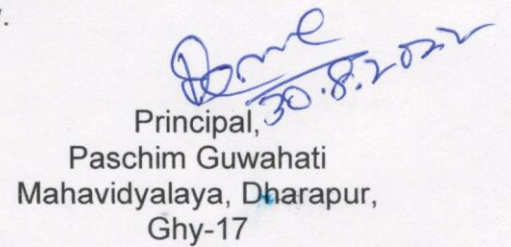 30.8.2022
Principal,
Paschim Guwahati
Mahavidyalaya, Dharapur,
Ghy-17